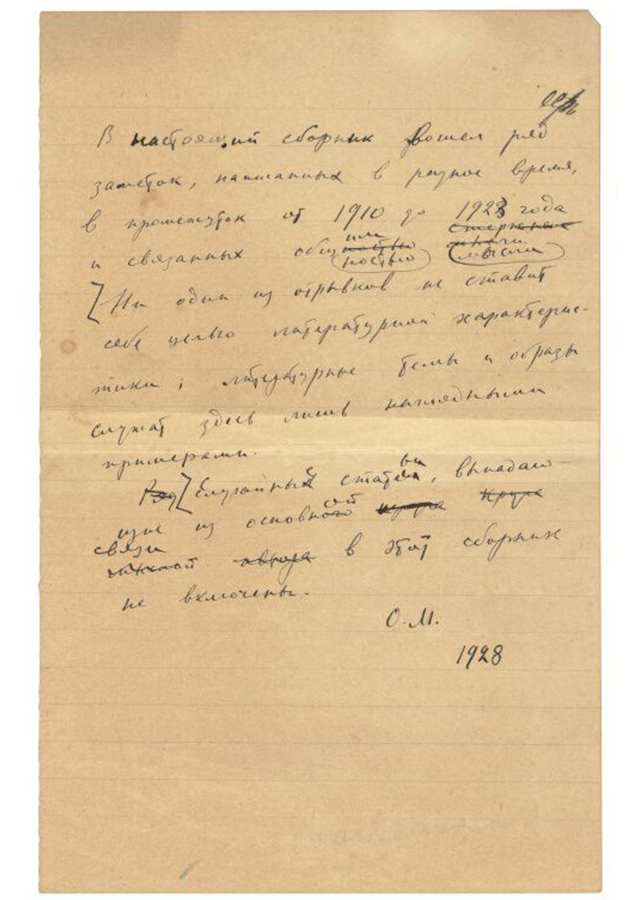 В настоящий сборник вошел ряд
заметок, написанных в разное время,
в промежуток от 1910 до 1923 года
и связанных общностью мысли
Ни один из отрывков не ставит
себе целью литературной характерис-
тики; литературные темы и образы
служат здесь лишь наглядными
примерами.
Ряд Случайные статьи, выпадаю-
щие из основной круга
связи
автора в этот сборник
не включены.
О. М.
1928